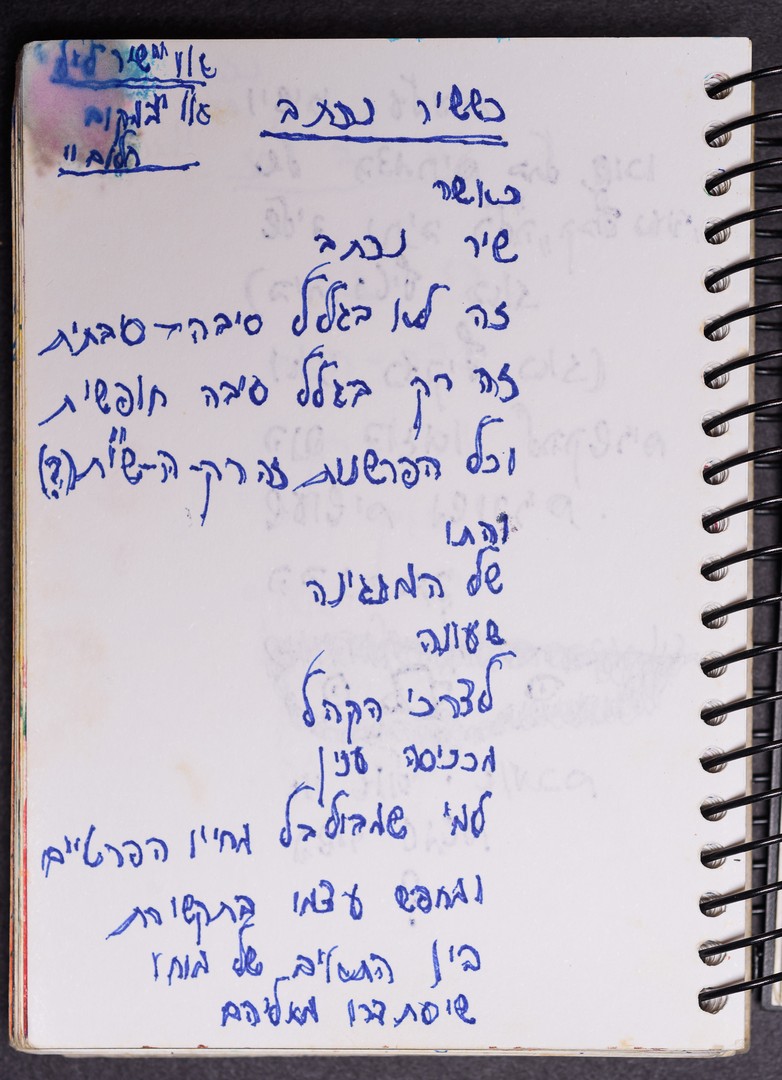 כששיר נכתב
כאשר
שיר נכתב
זה לא בגלל סיבה-סבתית
זה רק בגלל סיבה חופשית
וכל הפרשנות זה רק-ה-ש"ית(?)
והתו
של המנגינה
שעונה
לצרכי הקהל
מכניסה ענין
למי שמבולבל מחייו הפרטיים
ומחפש עצמו בתקשורת
בין התאים של מוחו
שיסתדרו מאליהם
או שיר לילי
או במקום
חלום"